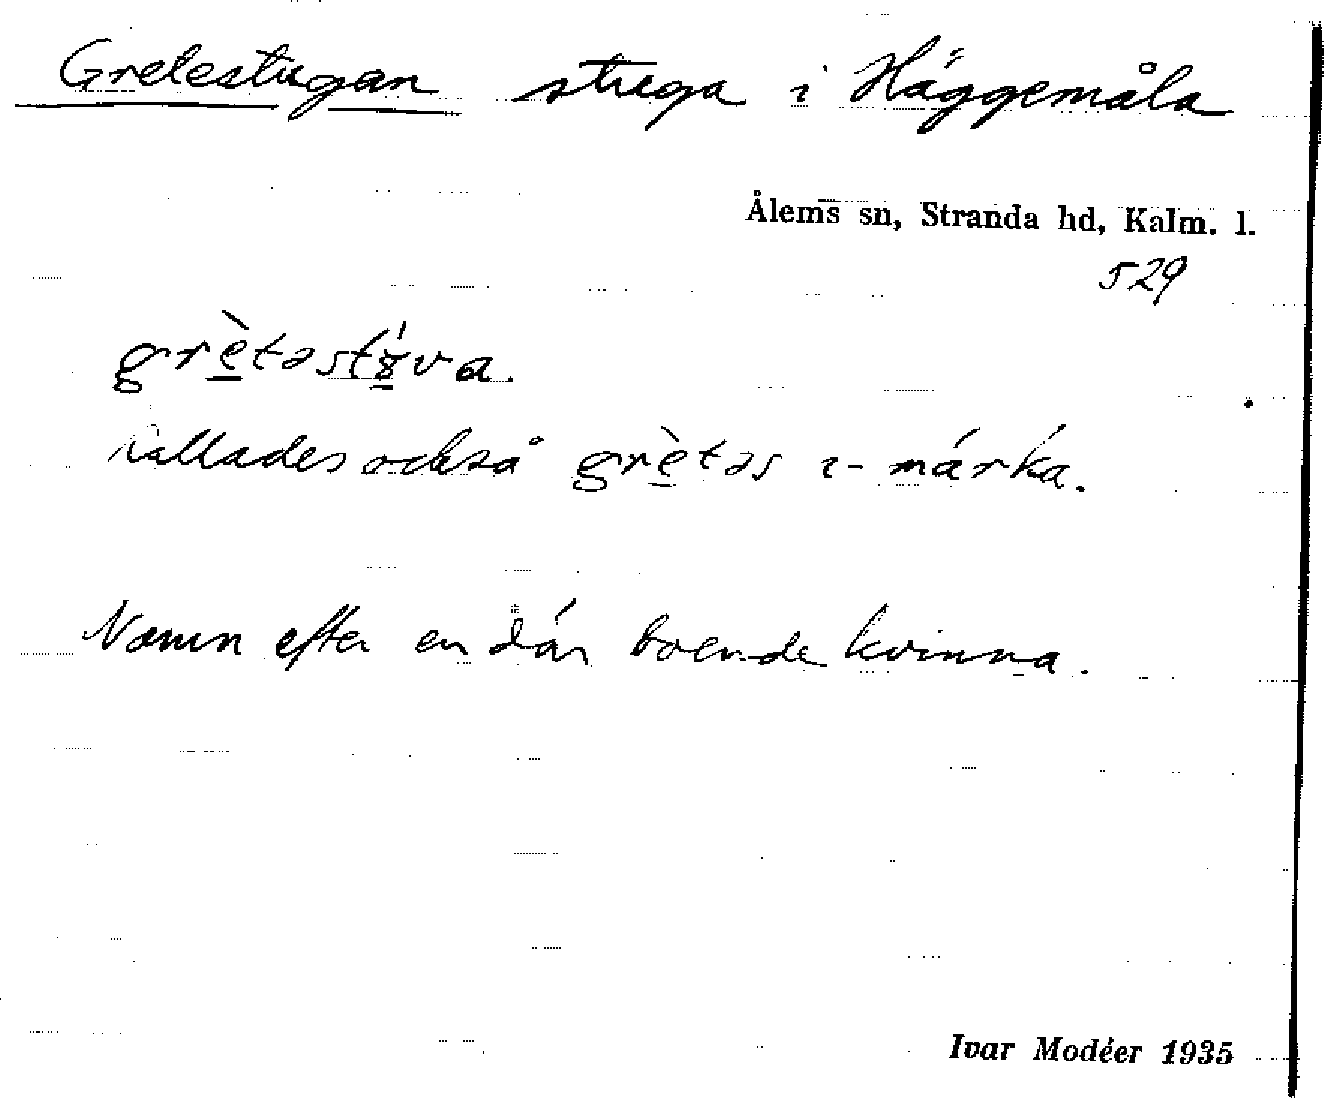 Gretestugan stuga i Häggemåla
Ålems sn, Stranda hd, Kalm. l.
529
grètəstýva.
kallades också grètəs i-márka.
Namn efter en där boende kvinna.
Ivar Modéer 1935